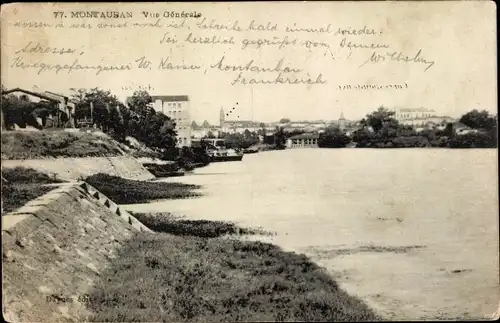 77. MONTAUBAN Vue Générale
kossen ist was sonst noch ist. Schreibe bald einmal wieder.
Sei herzlich gegrüsst von Deinem
Wilhelm
Adresse
Kriegsgefangener W. Kaiser, Montauban
Frankreich
édit.